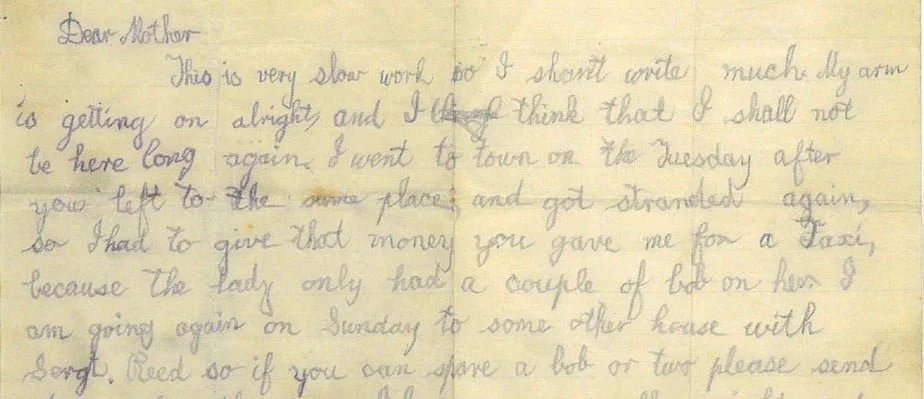 Dear Mother
This is very slow work so I shan't write much. My arm
is getting on alright, and I think that I shall not
be here long again. I went to town on the Tuesday after
you left to the same place, and got stranded again,
so I had to give that money you gave me for a Taxi,
because the lady only had a couple of bob on her. I
am going again on Sunday to some other house with
Sergt. Reed so if you can spare a bob or two please send